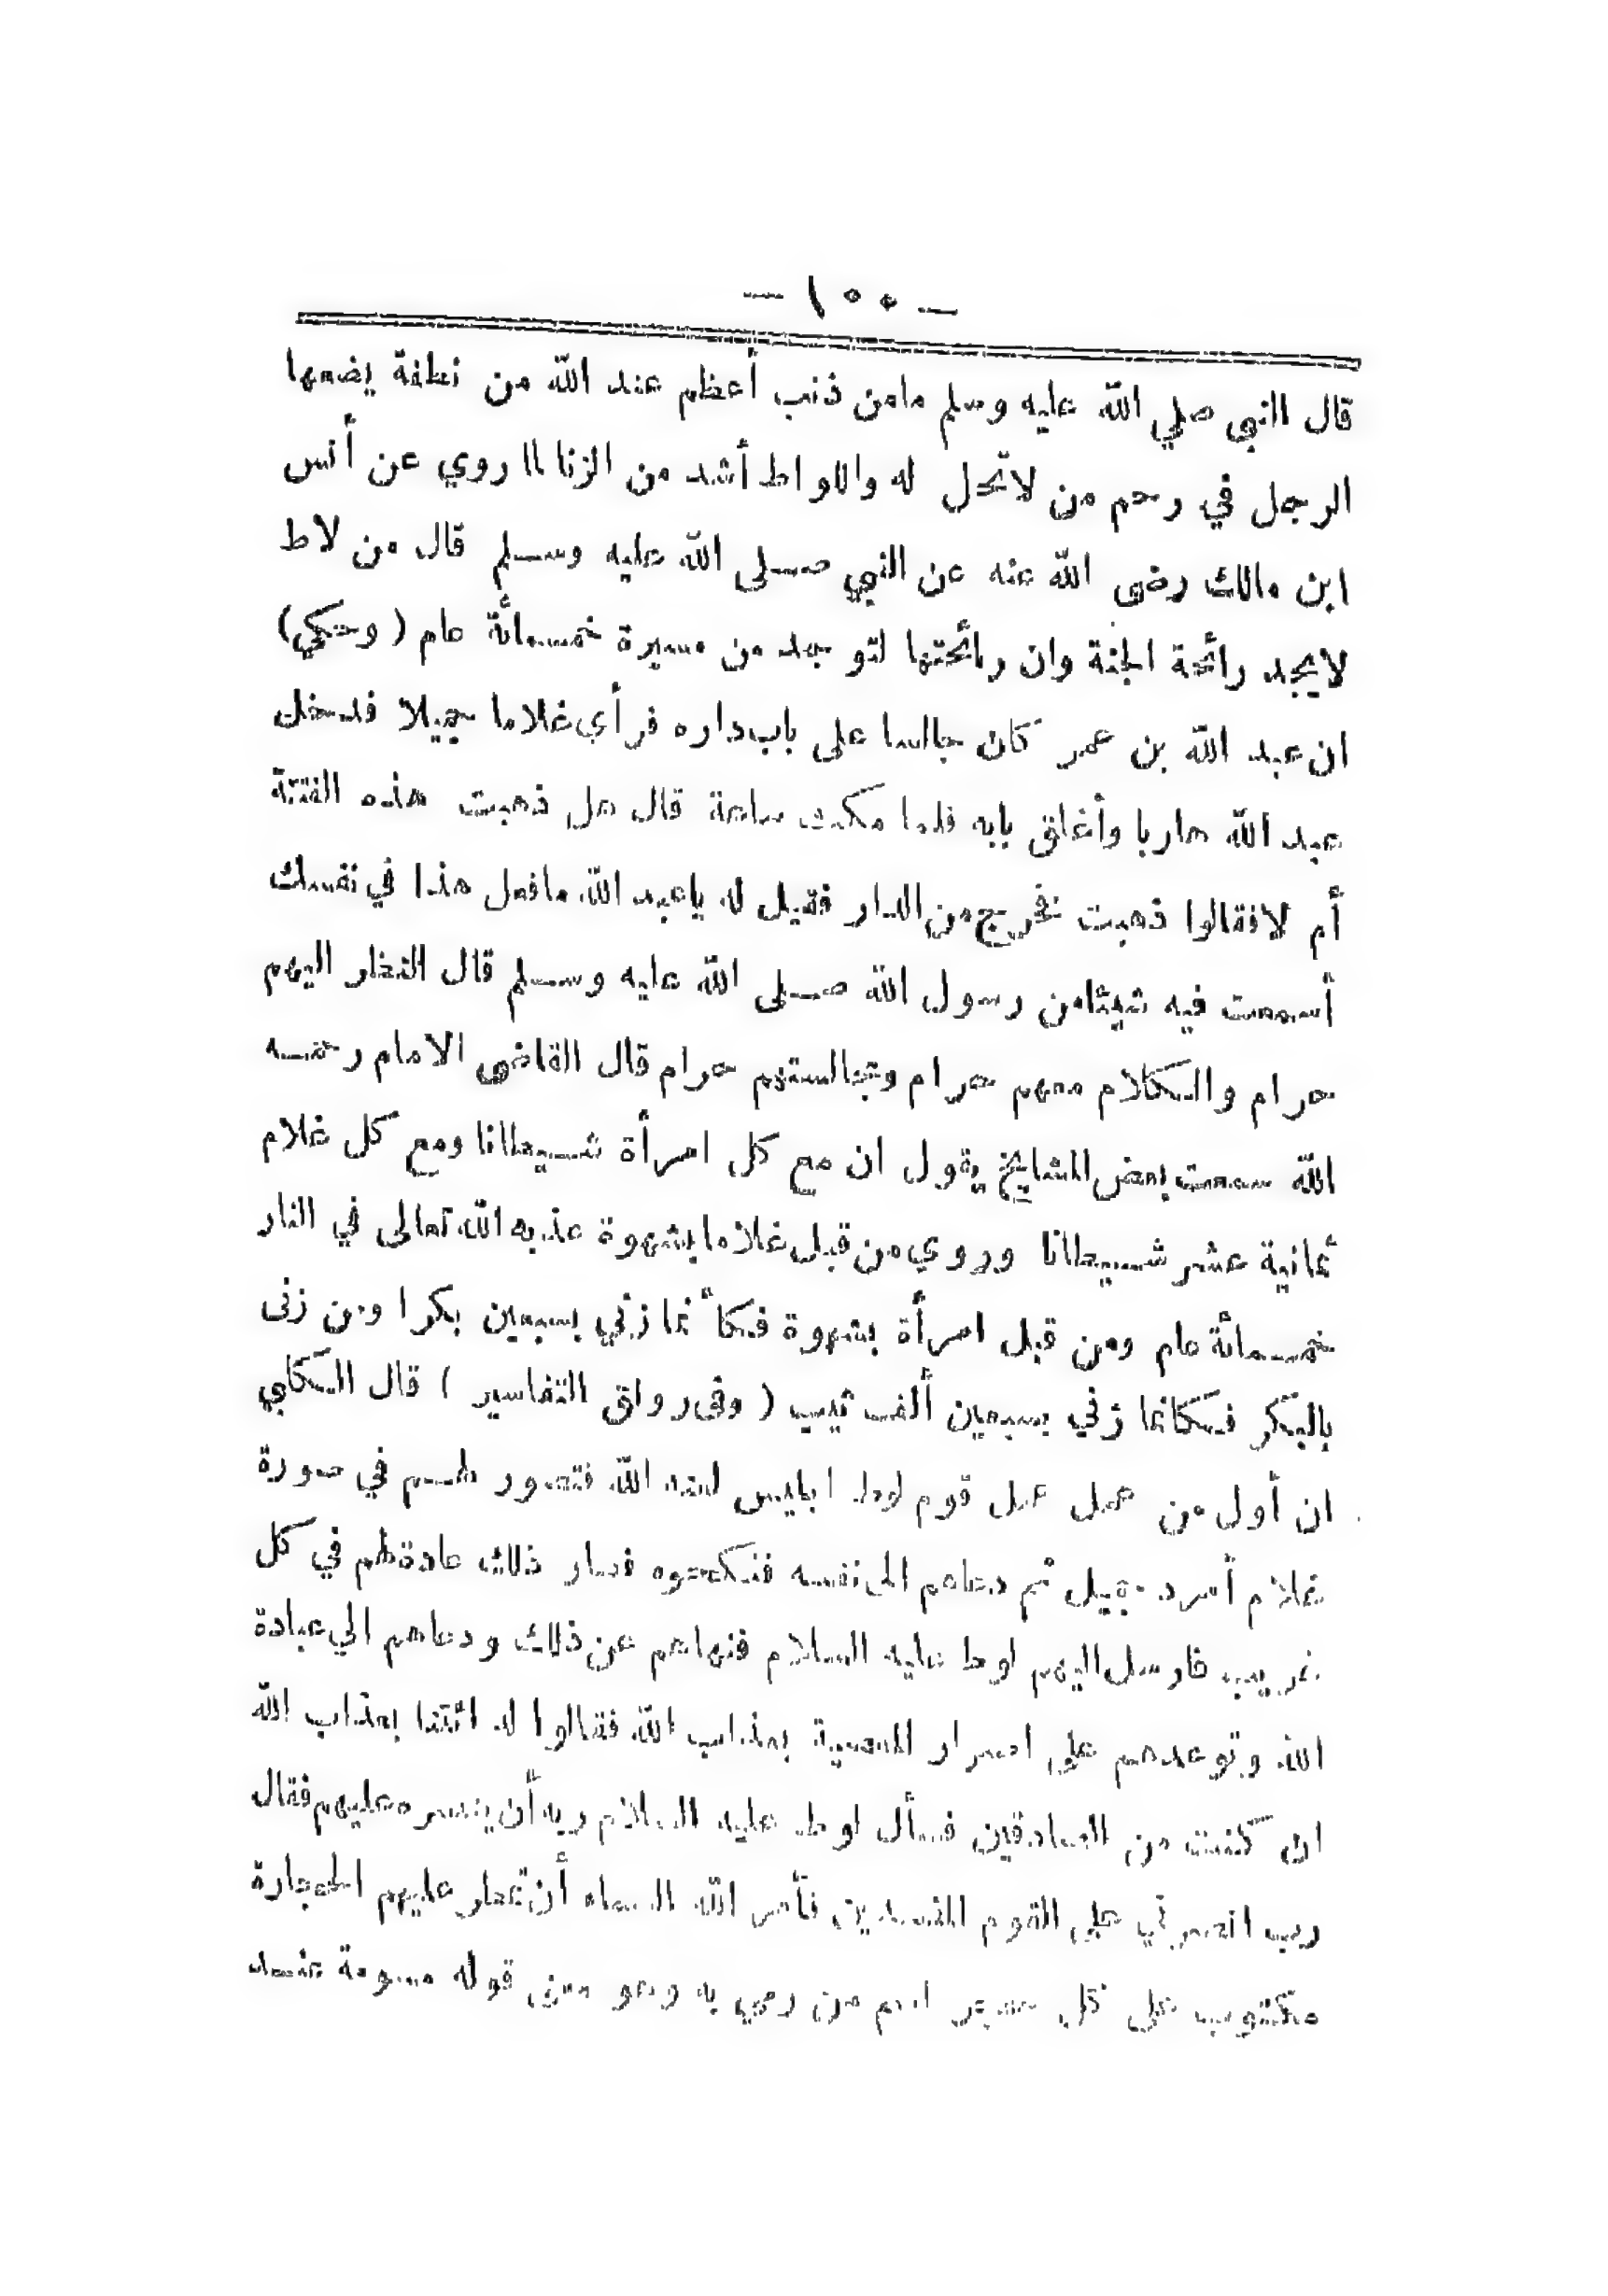 — ١٥٥ —
قال النبي صلي الله عليه وسلم مامن ذنب أعظم عند الله من نطفة يضعها
الرجل في رحم من لاتحل له واللواط أشد من الزنا لما روي عن أنس
ابن مالك رضى الله عنه عن النبي صلى الله عليه وسلم قال من لاط
لايجد رائحة الجنة وان رائحتها لتوجد من مسيرة خمسمائة عام (وحكي)
ان عبد الله بن عمر كان جالسا على باب داره فرأي غلاما جميلا فدخل
عبد الله هاربا وأغلق بابه فلما مكث ساعة قال هل ذهبت هذه الفتنة
أم لا فقالوا ذهبت فخرج من الدار فقيل له ياعبد الله مافعل هذا في نفسك
أسمعت فيه شيئا من رسول الله صلى الله عليه وسلم قال النظر اليهم
حرام والكلام معهم حرام ومجالستهم حرام قال القاضى الامام رحمه
الله سمعت بعض المشايخ يقول ان مع كل امرأة شيطانا ومع كل غلام
ثمانية عشر شيطانا وروي من قبل غلاما بشهوة عذبه الله تعالى في النار
خمسمائة عام ومن قبل امرأة بشهوة فكأنما زني بسبعين بكرا ومن زنى
بالبكر فكانما زني بسبعين ألف ثيب (وفى رواق التفاسير) قال الكلبي
ان أول من عمل عمل قوم لوط ابليس لعنه الله فتصور لهم في صورة
غلام أمرد جميل ثم دعاهم الى نفسه فنكحوه فصار ذلك عادة لهم في كل
غريب فارسل اليهم لوط عليه السلام فنهاهم عن ذلك ودعاهم الي عبادة
الله وتوعدهم على اصرار المعصية بعذاب الله فقالوا له ائتنا بعذاب الله
ان كنت من الصادقين فسأل لوط عليه السلام ربه أن ينصره عليهم فقال
رب انصرني على القوم المفسدين فأمر الله السماء أن تمطر عليهم الحجارة
مكتوب على كل حجر اسم من رمي به وهو معنى قوله مسومة عند